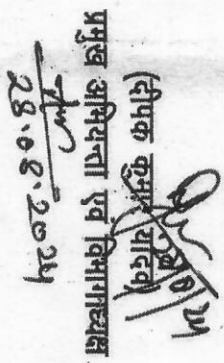 (दीपक कुमार यादव)
प्रमुख अभियन्ता एवं विभागाध्यक्ष
28.08.2024